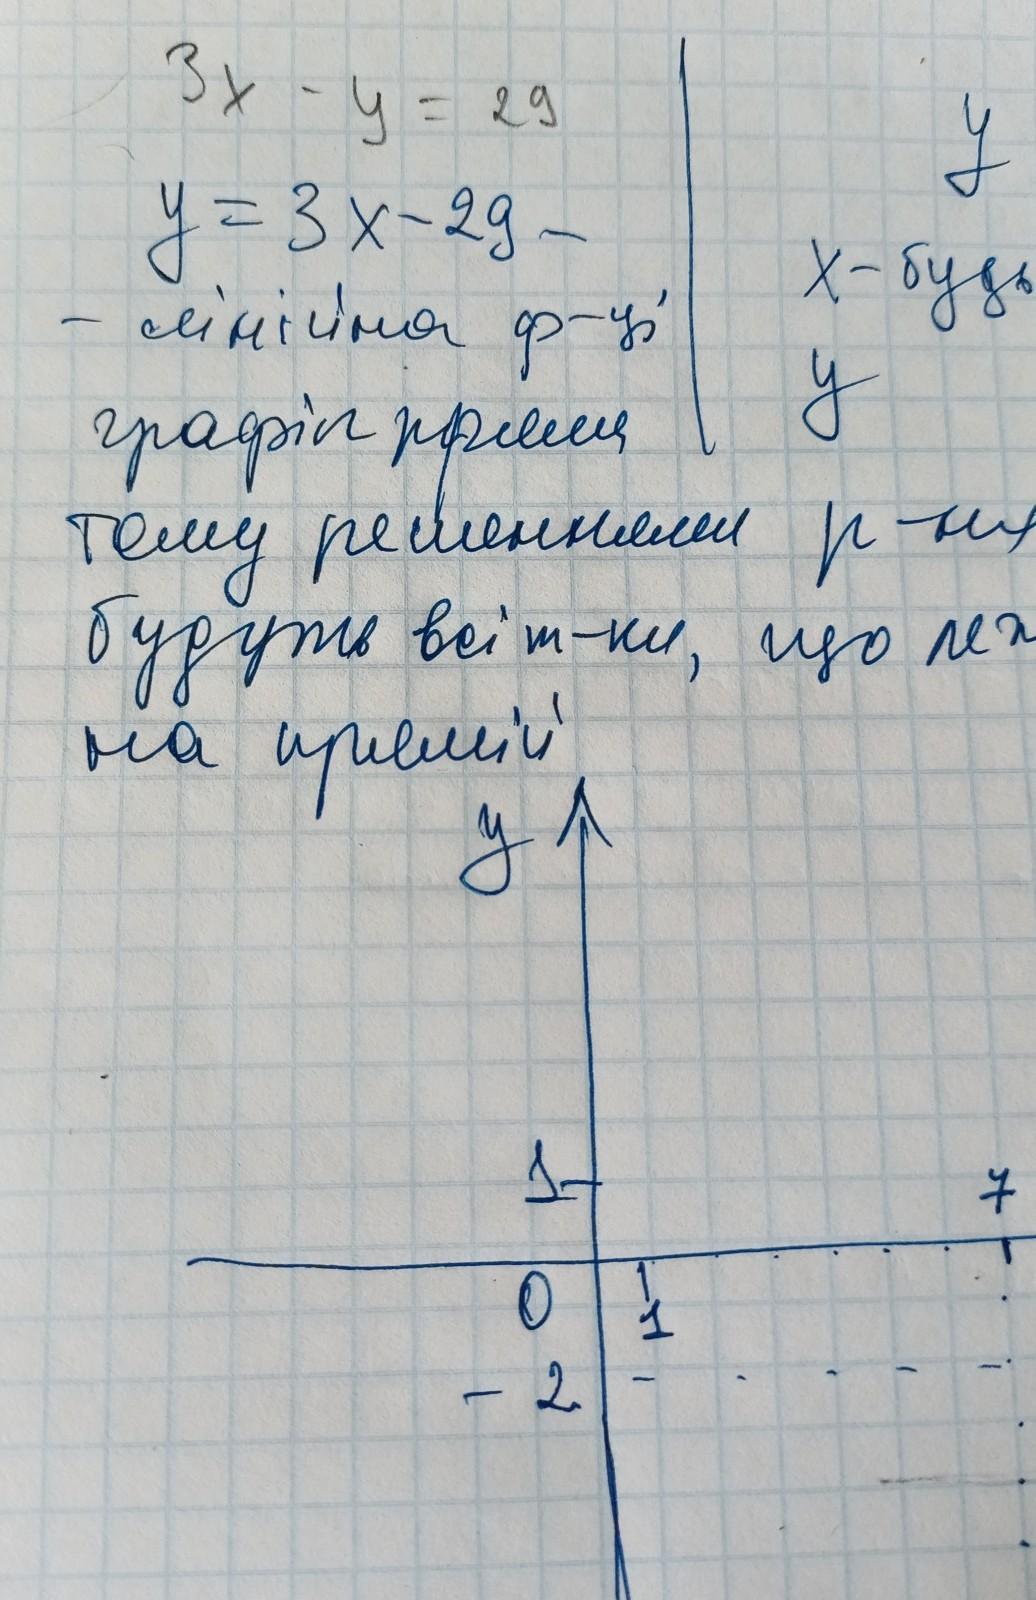 3x - y = 29
y = 3x - 29 -
- лінійна ф-ці
графік пряма
y
x - будь
y
тому решеннями р-ня
будуть всі т-ки, що леж
на прямій
y
1
7
0
1
- 2